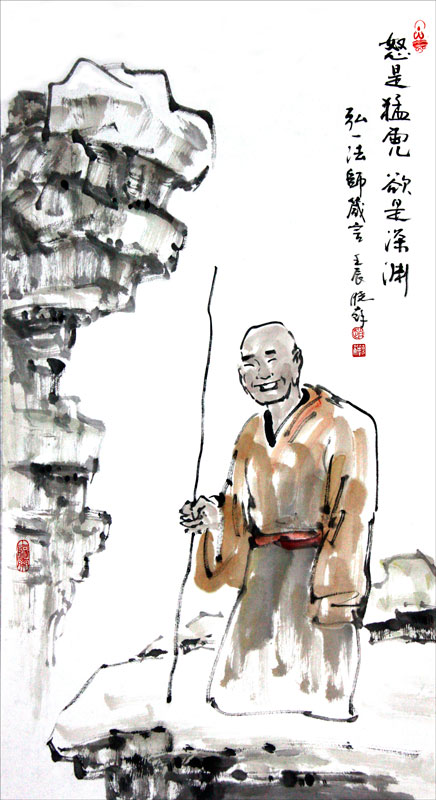 怒是猛虎 欲是深渊
弘一法師箴言 壬辰 晓